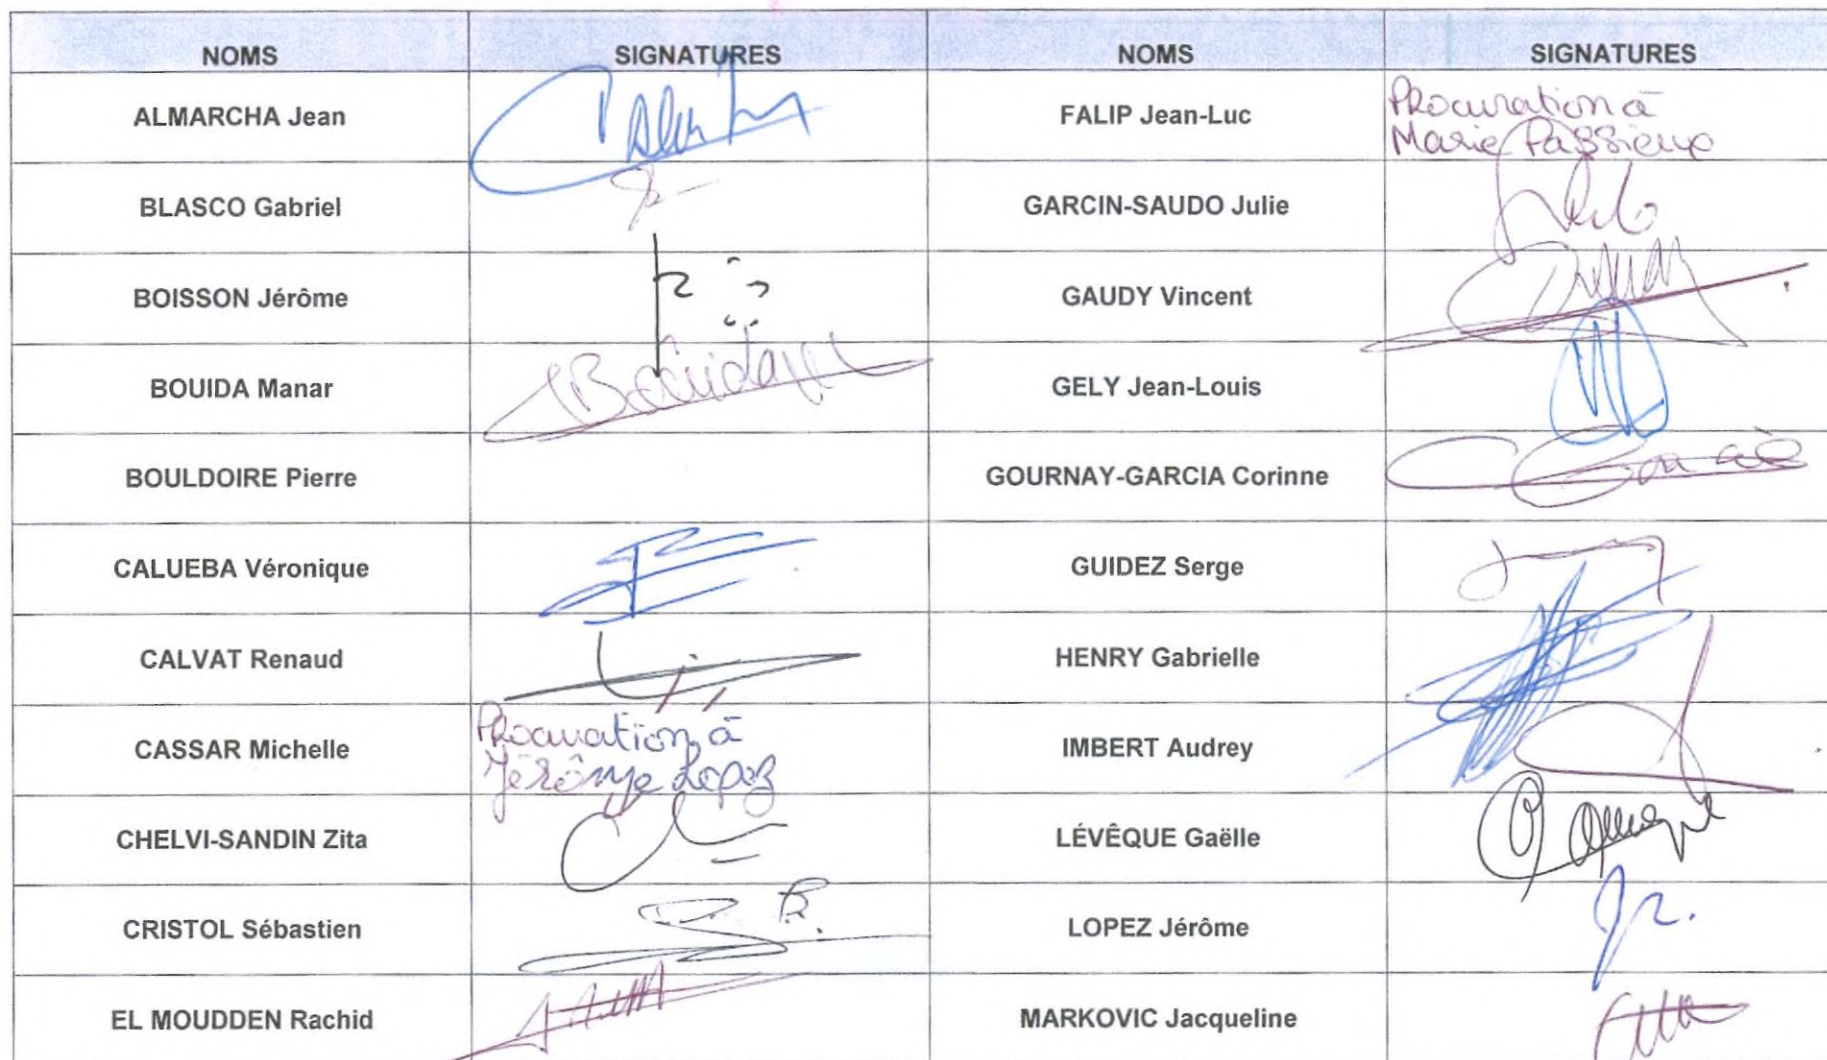 NOMS SIGNATURES NOMS SIGNATURES
ALMARCHA Jean FALIP Jean-Luc Procuration à
Marie Passieux
BLASCO Gabriel GARCIN-SAUDO Julie
BOISSON Jérôme GAUDY Vincent
BOUIDA Manar Bouida GELY Jean-Louis
BOULDOIRE Pierre GOURNAY-GARCIA Corinne
CALUEBA Véronique GUIDEZ Serge
CALVAT Renaud HENRY Gabrielle
CASSAR Michelle Procuration à
Jérôme Lopez IMBERT Audrey
CHELVI-SANDIN Zita LÉVÊQUE Gaëlle
CRISTOL Sébastien LOPEZ Jérôme
EL MOUDDEN Rachid MARKOVIC Jacqueline